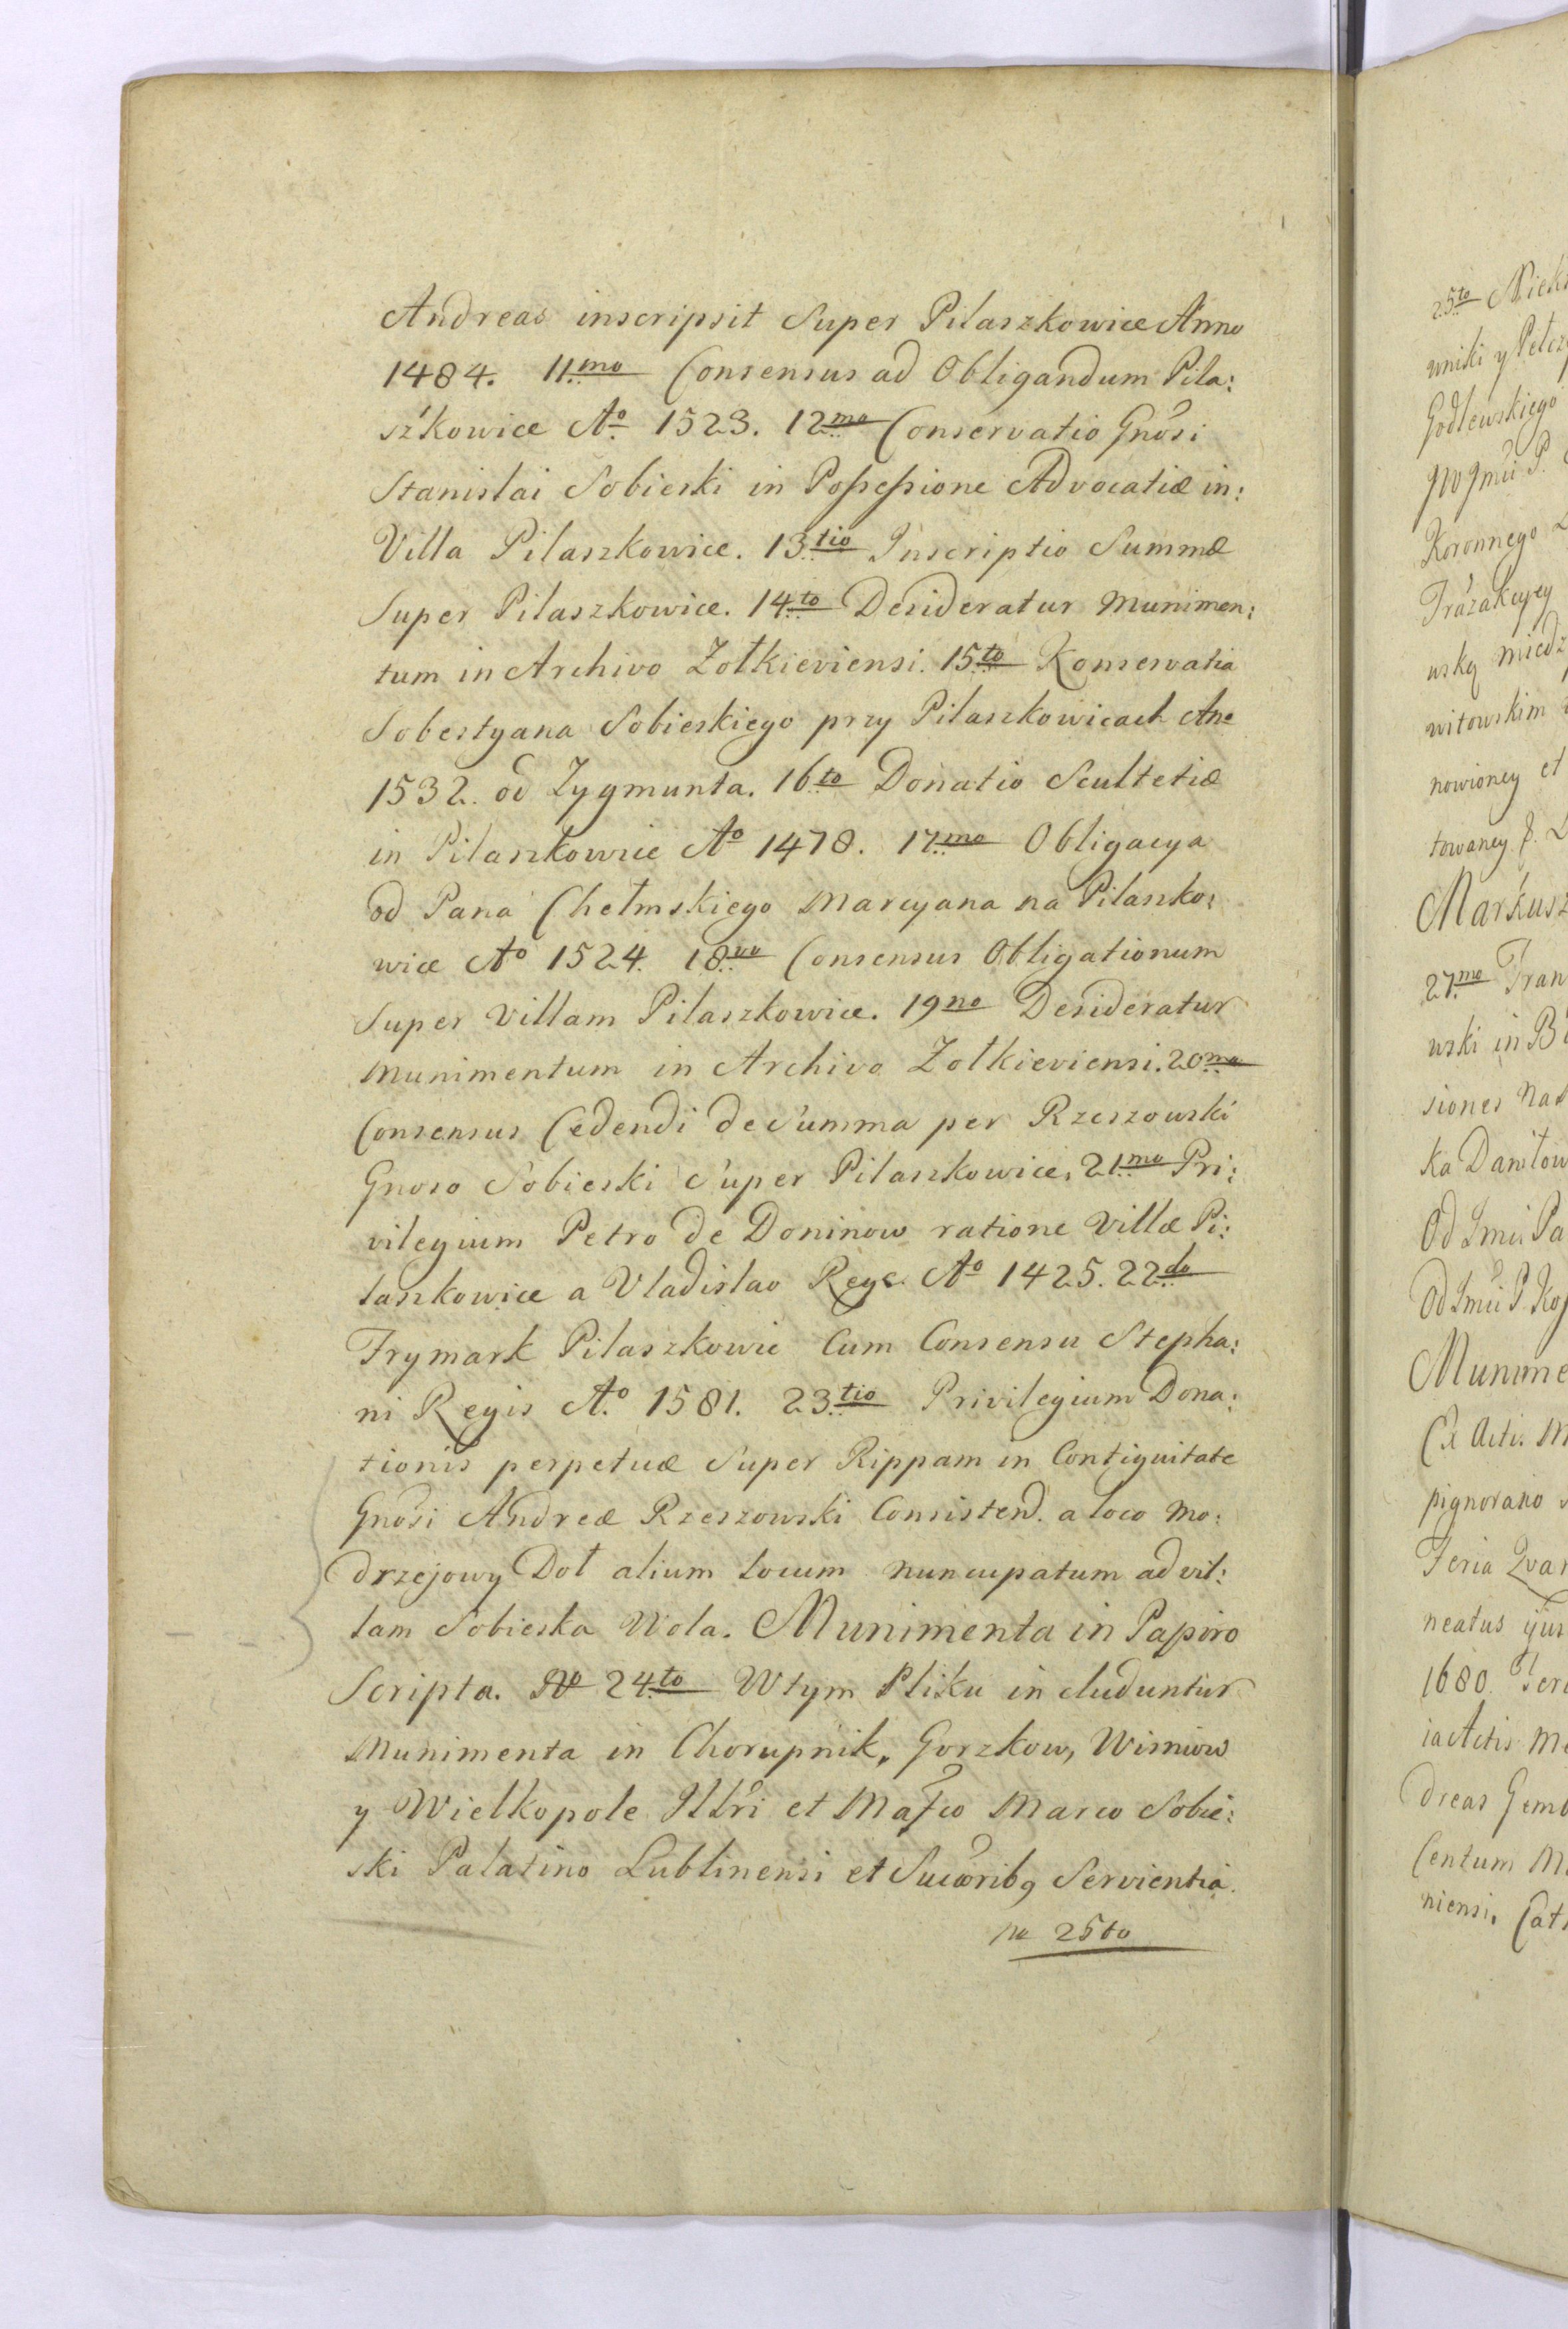 Andreas inscripsit Super Pilaszkowice Anno
1484. 11mo Consensus ad Obligandum Pila:
szkowice Ao 1523. 12mo Conservatio Gnosi
Stanislai Sobieski in Possessione Advocatiæ in:
Villa Pilaszkowice. 13tio Inscriptio Summæ
Super Pilaszkowice. 14to Desideratur Munimen:
tum in Archivo Zołkieviensi. 15to Konserwatia
Sobestyana Sobieskiego przy Pilaszkowicach Ano
1532. od Zygmunta. 16to Donatio Scultetiæ
in Pilaszkowice Ao 1478. 17mo Obligacya
od Pana Chełmskiego Marcyana na Pilaszko:
wice Ao 1524. 18vo Consensus Obligationum
Super Villam Pilaszkowice. 19no Desideratur
Munimentum in Archivo Zołkieviensi. 20mo
Consensus Cedendi de Summa per Rzeszowski
Gnoso Sobieski Super Pilaszkowice. 21mo Pri:
vilegium Petro de Doninow ratione Villæ Pi:
laszkowice a Vladislao Rege Ao 1425. 22do
Frymark Pilaszkowic Cum Consensu Stepha:
ni Regis Ao 1581. 23tio Privilegium Dona:
tionis perpetuæ Super Rippam in Contiguitate
Gnosi Andreæ Rzeszowski Consistend. a loco Mo:
drzejowy Doł alium locum nuncupatum ad vil:
lam Sobieska Wola. Munimenta in Papiro
Scripta. No 24to W tym Pliku includuntur
Munimenta in Chorupnik, Gorzkow, Wisniow
y Wielkopole Illri et Mafco Marco Sobie:
ski Palatino Lublinensi et Succoribq Servientia.
no 25to
25to
wniki y
Godlewskiego
Koronnego
uską miedz
witowskim
nowioney et
towaney
Markusz
27mo Fran
uski in
siones
ka Daniłow
Od Jmci Pa
Od Jmci P.
Munime
pignorano
Feria Quar
neatus
1680.
dreas
Centum
niensi.